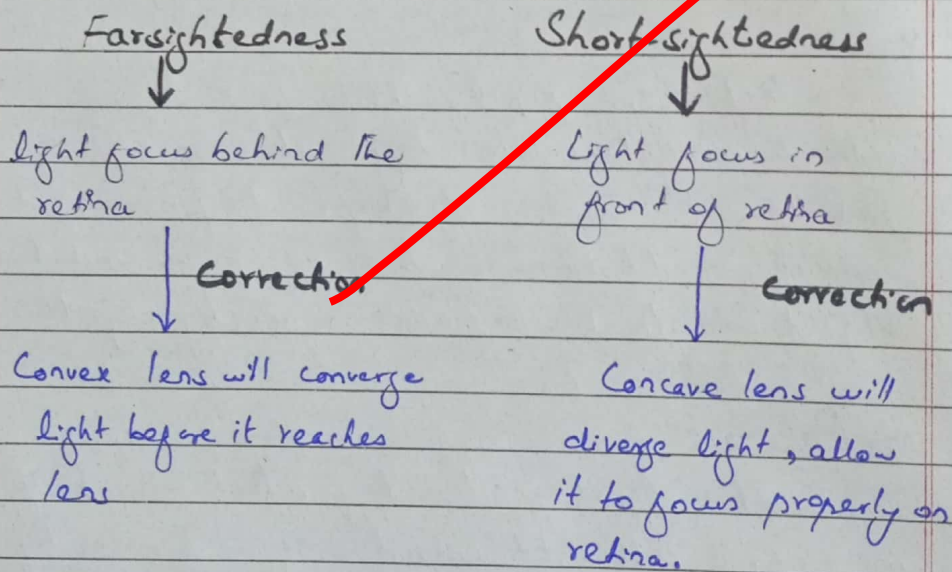 Farsightedness
light focus behind the
retina
Correction
Convex lens will converge
light before it reaches
lens
Short-sightedness
Light focus in
front of retina
Correction
Concave lens will
diverge light, allow
it to focus properly on
retina.